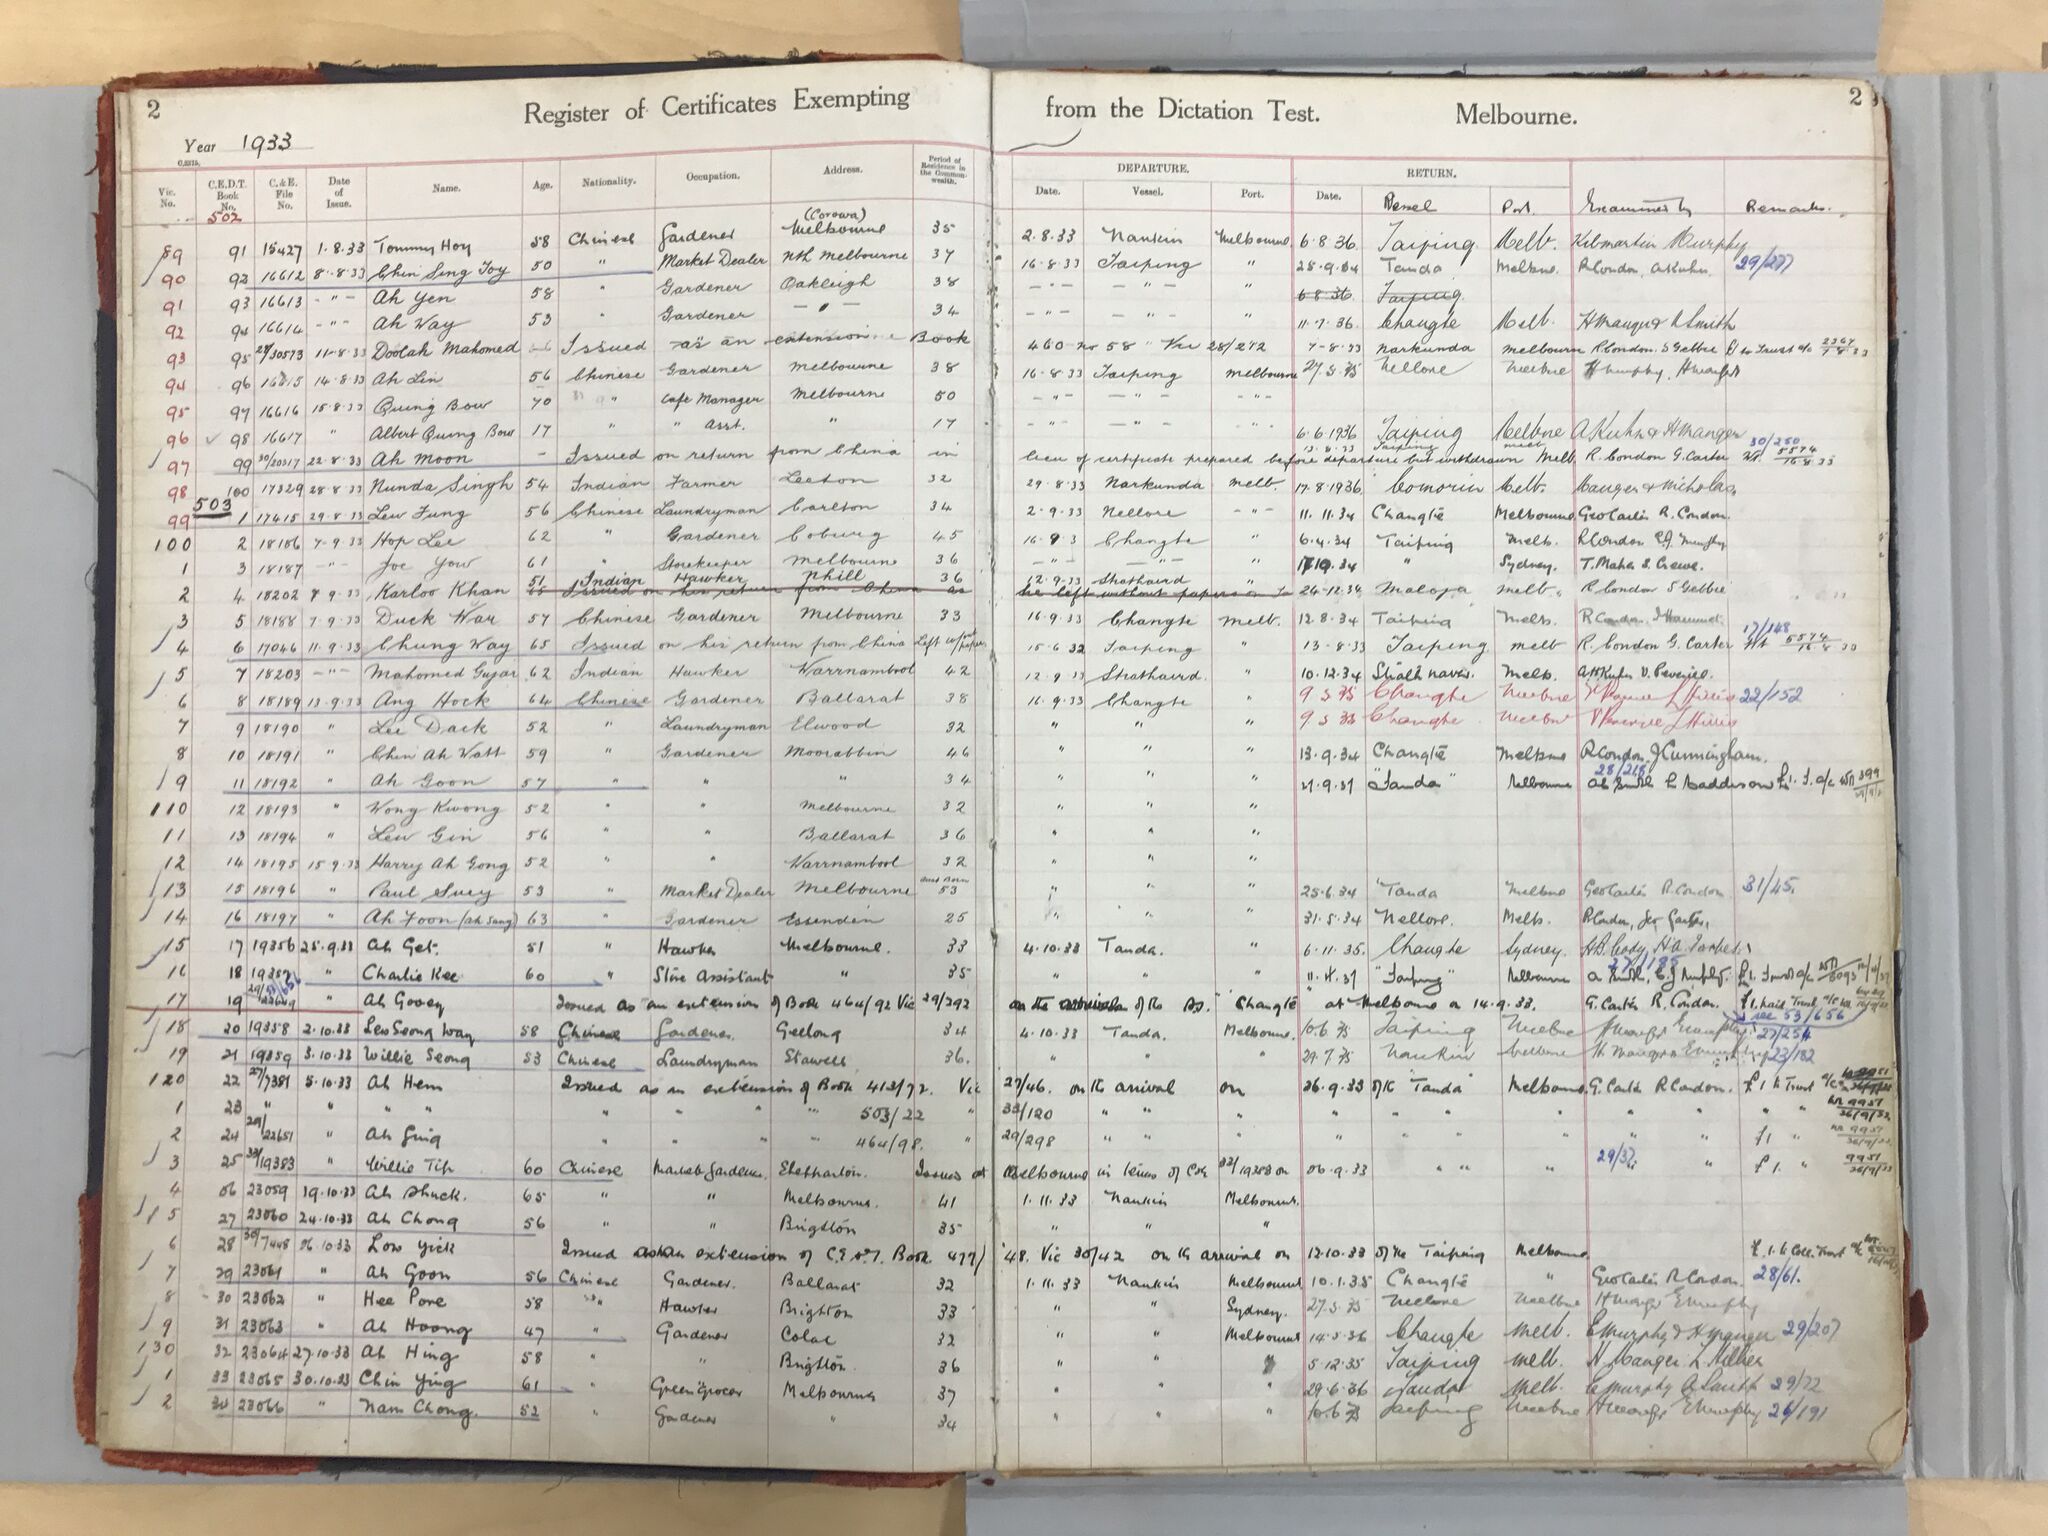 2 Register of Certificates Exempting from the Dictation Test. Melbourne. 2
Year 1933
DEPARTURE. RETURN.
Vic. No. C.E.D.T. Book No. C.&E. File No. Date of Issue. Name. Age. Nationality. Occupation. Address. Period of Residence in the Commonwealth. Date. Vessel. Port. Date. Vessel Port. Examined by Remarks.
502
(Corowa)
89 91 15427 1.8.33 Tommy Hoy 58 Chinese Gardener Melbourne 35 2.8.33 Nankin Melbourne 6.8.36 Taiping Melb. Murphy
90 92 16612 8.8.33 Chin Sing Foy 50 " Market Dealer Nth Melbourne 37 16.8.33 Taiping " 28.9.34 Tanda Melbne R Condon. A Kuhn. 29/277
91 93 16613 - " - Ah Yen 58 " Gardener Oakleigh 38 - " - - " - " 6.8.36 Taiping
92 94 16614 - " - Ah Way 53 " Gardener - " - 34 - " - - " - " 11.7.36 Changte Melb. H Manger & Smith
93 95 29/30573 11.8.33 Doolah Mahomed Issued as an extension Book 460 no 58 Vic 28/272 7-8-33 Narkunda Melbourne R Condon. S Gebbie £1 to Trust a/c 2367 7.8.33
94 96 16615 14.8.33 Ah Lin 56 Chinese Gardener Melbourne 38 16.8.33 Taiping Melbourne 27.5.35 Nellore Melbne H Murphy.
95 97 16616 15.8.33 Quing Bow 70 " Cafe Manager Melbourne 50 - " - - " - - " -
96 98 16617 " Albert Quing Bow 17 " " Asst. " 17 - " - - " - - " - 6.6.1936 Taiping Melbne A Kuhn & H Manger
97 99 30/20317 22.8.33 Ah Moon - Issued on return from China in lieu of certificate prepared before departure but withdrawn 13.8.33 Taiping Melb. R. Condon G. Carter 30/250 5574 16.8.33
98 100 17329 28.8.33 Nunda Singh 54 Indian Farmer Leeton 32 29.8.33 Narkunda Melb. 17.8.1936 Comorin Melb. Manger & Nicholas
503
99 1 17415 29.8.33 Lew Fung 56 Chinese Laundryman Carlton 34 2.9.33 Nellore - " - 11.11.34 Changte Melbourne Geo Carter R. Condon.
100 2 18186 7-9.33 Hop Lee 62 " Gardener Coburg 45 16.9.3 Changte " 6.4.34 Taiping Melb. R Condon
1 3 18187 - " - Joe Yow 61 " Storekeeper Melbourne 36 - " - - " - " " Sydney. T. Maher S. Crewe.
2 4 18202 7.9.33 Karloo Khan 51 Indian Hawker Nhill 36 12.9.33 Strathaird " 24-12.34 Maloja Melb. R Condon S Gebbie
65 Issued on his return from China as he left without papers on
3 5 18188 7-9.33 Duck War 57 Chinese Gardener Melbourne 33 16.9.33 Changte Melb. 12.8.34 Taiping Melb. R Condon
4 6 17046 11-9.33 Chung Way 65 Issued on his return from China Left w/papers 15.6.32 Taiping " 13-8.33 Taiping Melb R. Condon G. Carter 17/148 5574 16.8.33
5 7 18203 - " - Mahomed Gujar 62 Indian Hawker Warrnambool 42 12.9.33 Strathaird. " 10.12.34 Strathnaver. Melb. A H Kuhn V. Peverill.
6 8 18189 13.9.33 Ang Hock 64 Chinese Gardener Ballarat 38 16.9.33 Changte " 9 5 35 Changte Melbne 22/152
7 9 18190 " Lee Dack 52 " Laundryman Elwood 32 " " " 9 5 35 Changte Melbne
8 10 18191 " Chin Ah Vatt 59 " Gardener Moorabbin 46 " " " 13.9.34 Changte Melbne R Condon J Cunningham.
9 11 18192 " Ah Goon 57 " " " 34 " " " 27.9.37 "Tanda" Melbourne 28/218
110 12 18193 " Wong Kwong 52 " " Melbourne 32 " " "
11 13 18194 " Lew Gin 56 " " Ballarat 36 " " "
12 14 18195 15.9.33 Harry Ah Gong 52 " " Warrnambool 32 " " "
13 15 18196 " Paul Suey 53 " Market Dealer Melbourne Aust Born 53 " " " 25.6.34 Tanda Melbne Geo Carter R. Condon 31/45.
14 16 18197 " Ah Foon (Ah Sung) 63 " Gardener Essendon 25 " " " 31.5.34 Nellore. Melb. R Condon, Geo Carter,
15 17 19356 25.9.33 Ah Get. 51 " Hawker Melbourne. 33 4.10.33 Tanda. " 6.11.35. Changte Sydney.
16 18 19357 " Charlie Kee 60 " Store Assistant " 35 " " " "Taiping" Melbourne 27/185
17 19 29/22649 " Ah Gooey Issued as an extension of Book 464/92 Vic 29/292 on the arrival of the S.S. Changte at Melbourne on 14.9.33. G. Carter R. Condon.
see 53/656
18 20 19358 2.10.33 Leo Seong Way 58 Chinese Gardener Geelong 34 4.10.33 Tanda. Melbourne. 10.6.35 Taiping Melbne 27/254
19 21 19359 3.10.33 Willie Seong 53 Chinese Laundryman Stawell 36. " " " 29.7.35 Nankin Melbne 23/182
120 22 27/7381 5.10.33 Ah Hem Issued as an extension of Book 413/72. Vic 27/46. on the arrival on 26.9.33 of the "Tanda" Melbourne. G. Carter R Condon. £1 to Trust a/c 9951 26/9/33
1 23 " " " " " " " " 503/22 " 33/120 " " " " " " " " " " 9951 26/9/33
2 24 29/22651 " Ah Ging " " " " 464/98. " 29/298 " " " " " " " " £1 " 9951 26/9/33
3 25 33/19383 " Willie Tip 60 Chinese Market Gardener Eltham. Issued at Melbourne in lieu of 26.9.33 " " " 29/37 " £1. " 9951 26/9/33
4 26 23059 19.10.33 Ah Shuck. 65 " " Melbourne. 41 1.11.33 Nankin Melbourne.
5 27 23060 24.10.33 Ah Chong 56 " " Brighton 35 " " "
6 28 30/7448 26.10.33 Low Yick Issued as an extension of C.E.D.T. Book 477/48. Vic 30/42 on the arrival on 12.10.33 of the Taiping Melbourne
7 29 23061 " Ah Goon 56 Chinese Gardener. Ballarat 32 1.11.33 Nankin Melbourne 10.1.35 Changte " Geo Carter R Condon. 28/61.
8 30 23062 " Hee Pore 58 " Hawker Brighton 33 " " Sydney. 27.5.35 Nellore Melbne H Manger E Murphy
9 31 23063 " Ah Hoong 47 " Gardener Colac 32 " " Melbourne 14.5.36 Changte Melb. E Murphy & H Manger 29/207
130 32 23064 27.10.33 Ah Hing 58 " " Brighton. 36 " " " 5.12.35 Taiping Melb. H Manger L Hillier
1 33 23065 30.10.33 Chin Ying 61 " Green Grocer Melbourne 37 " " " 29.6.36 Tanda Melb. E Murphy A Smith 29/22
2 34 23066 " Nam Chong. 52 " Gardener " 34 " " " 10.6.35 Taiping Melbne H Manger E Murphy 26/191